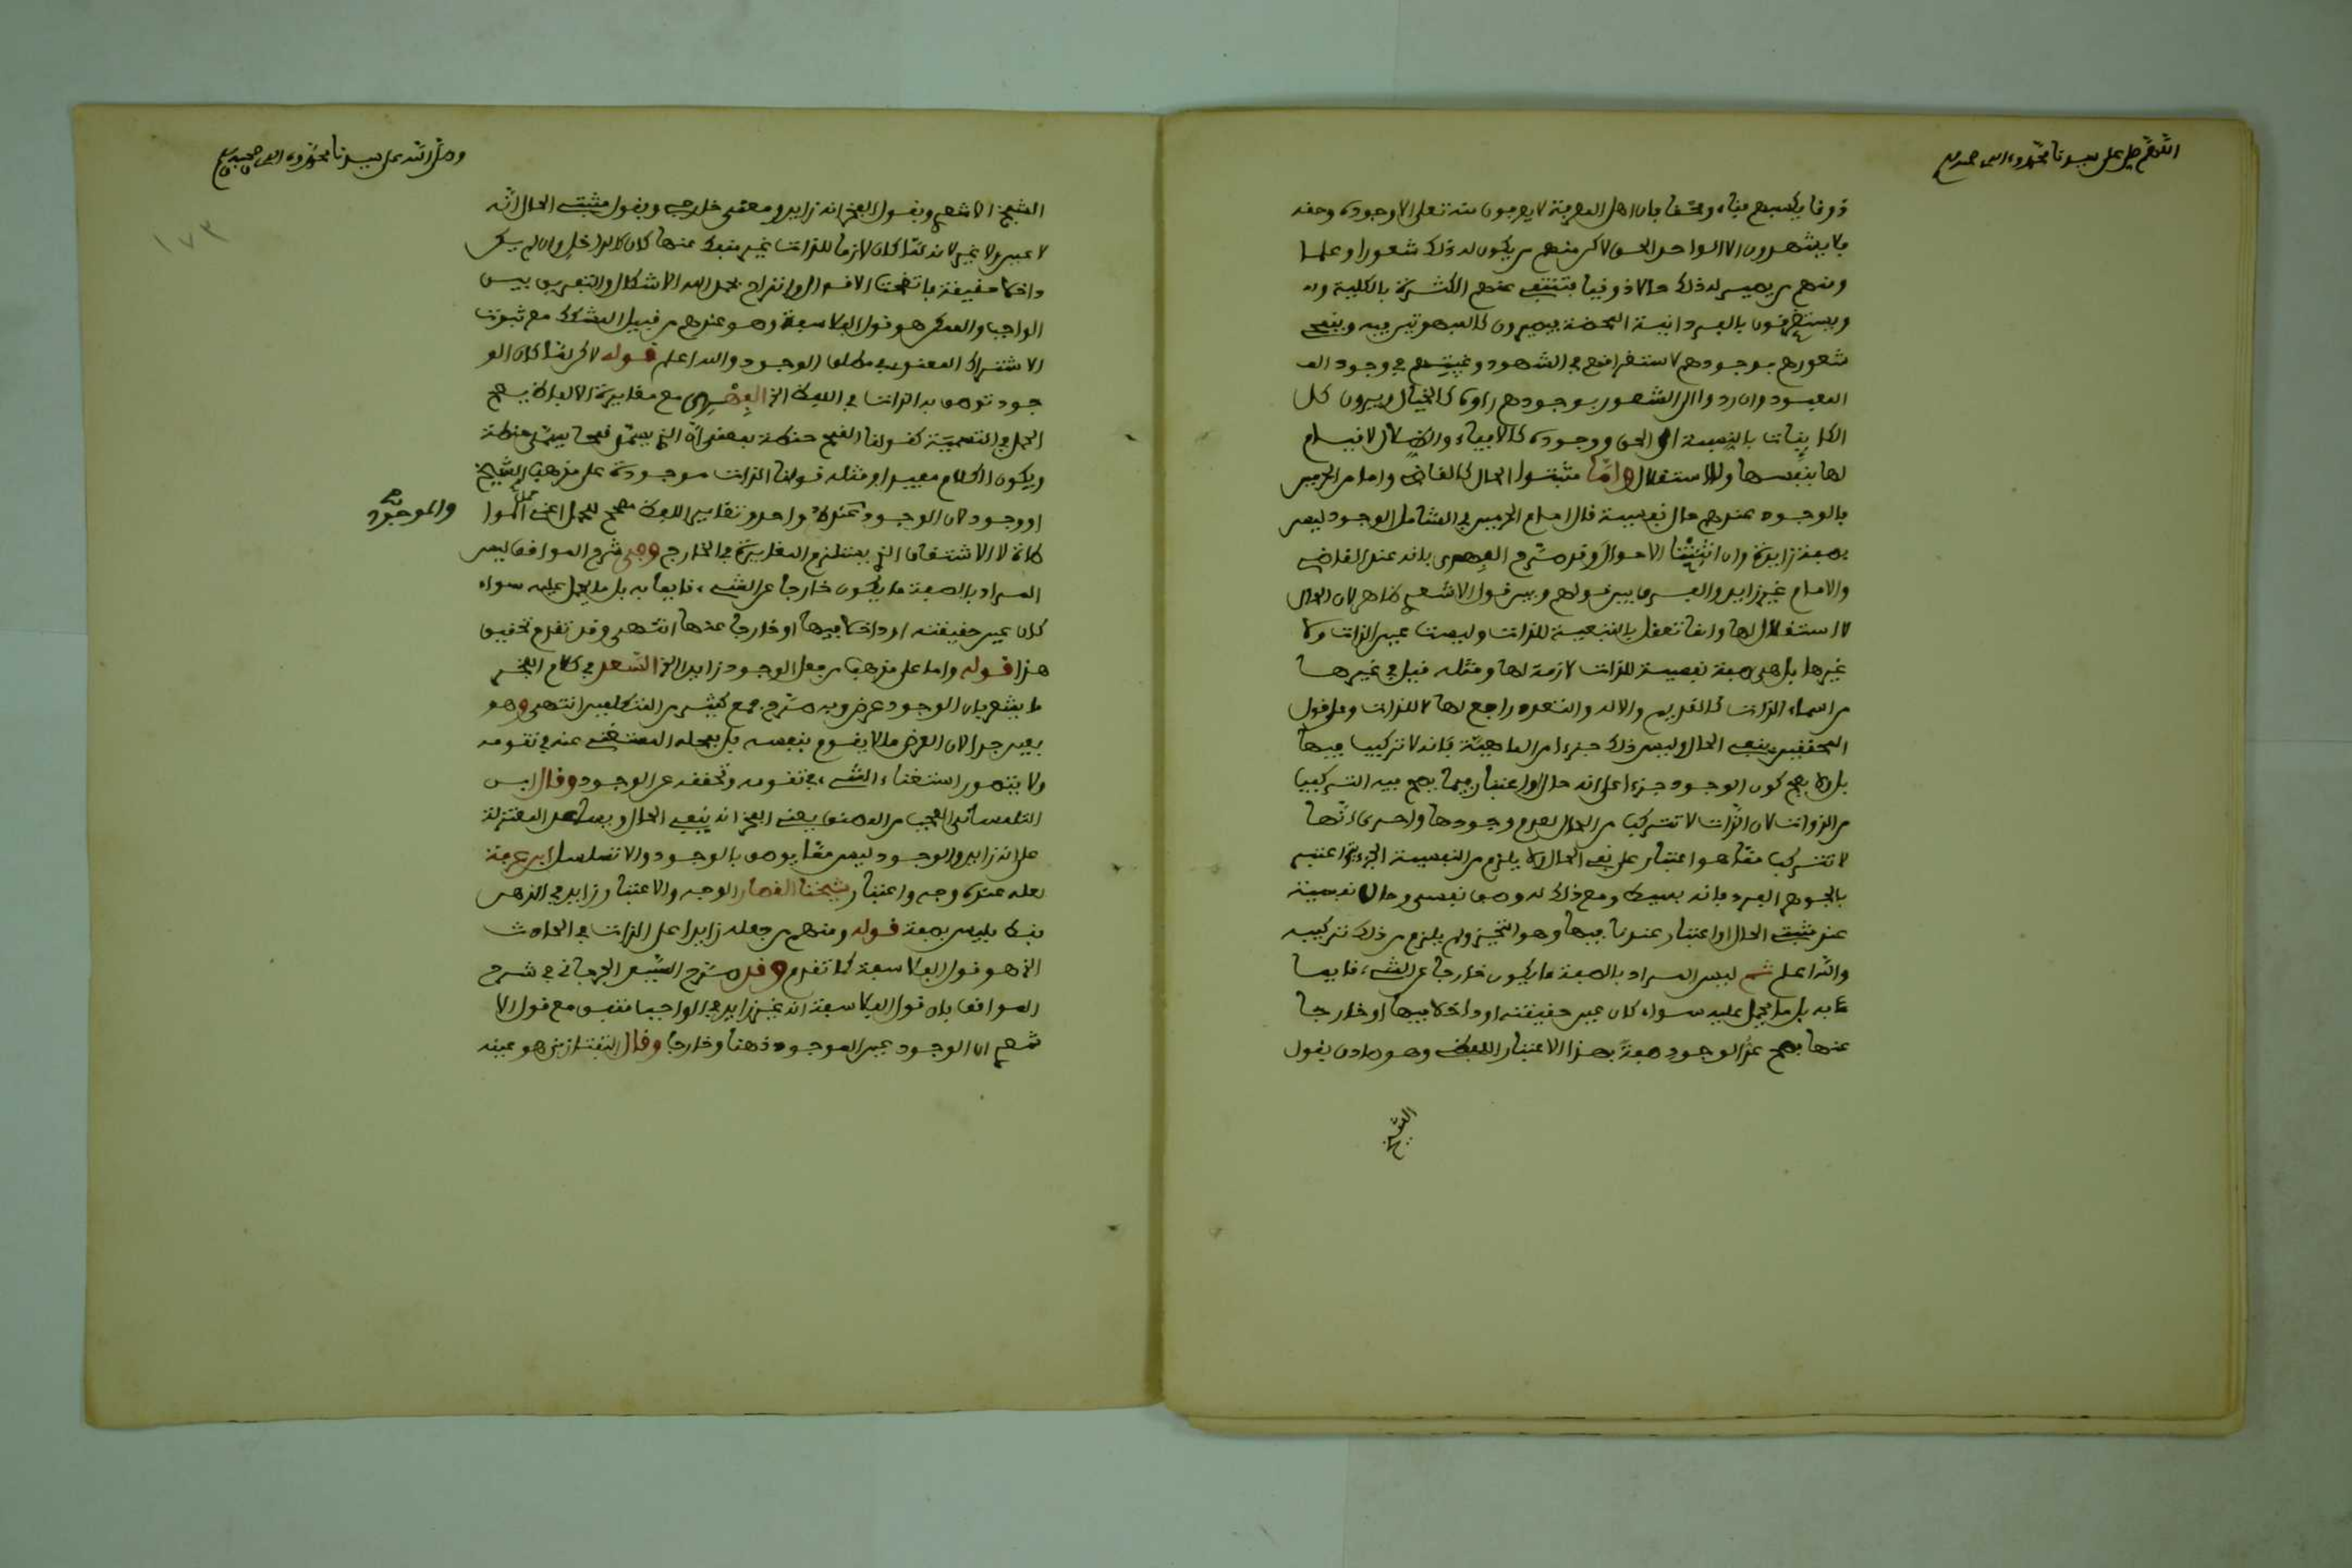 اللهم صل على سيدنا محمد وءاله وصحبه وسلم
ذوقا يكسبهم فناء ومحقا بان اهل المعرفة لا يعرفون منه تعلى الا وجوده وحقه
فلا يشهدون الا الواحد الحق لاكن منهم من يكون له ذلك شعورا وعلما
ومنهم من يصير له ذلك حالا ذوقيا فتنتفي عنهم الكثرة بالكلية
ويستغرقون بالفردانية المحضة فيصيرون كالمبهوتين فيه وينمحى
شعورهم بوجودهم لاستغراقهم في الشهود وغيبتهم في وجود
المعبود وان ردوا الى الشعور بوجودهم راوه كالخيال ويرون كل
الكاينات بالنسبة الى الحق ووجوده كالافياء والظلال لا قيام
لها بنفسها ولا استقلال واما مثبتوا الحال كالقاضي وامام الحرمين
فالوجود عندهم حال نفسية قال امام الحرمين في الشامل الوجود ليس
بصفة زايدة وان اثبتنا الاحوال وقد صرح الفهري بانه عند القاضي
والامام غير زايد والفرق بين قولهم وبين قول الاشعري ظاهر لان الحال
لا استقلال لها وانما تعقل بالتبعية للذات وليست عين الذات ولا
غيرها بل هي صفة نفسية للذات لازمة لها ومثله قيل في غيرها
من اسماء الذات كالقديم والاله والتعدد راجع لها لا للذات وعلى قول
المحققين بنفي الحال وليس ذلك جزءا من الماهية فانه لا تركيب فيها
بل ولا يصح كون الوجود جزءا على انه حال او اعتبار فيما يصح فيه التركيب
من الذوات لان الذات لا تتركب من الحال لعدم وجودها واحرى انها
لا تتركب مما هو اعتبار على نفي الحال ولا يلزم من النفسية الجزئية اعتبر
بالجوهر الفرد فانه بسيط ومع ذلك له وصف نفسي وحال نفسية
عند مثبت الحال او اعتبار عند نافيها وهو التحيز ولم يلزم من ذلك تركيبه
والله اعلم ثم ليس المراد بالصفة ما يكون خارجا عن الشيء قايما
به بل ما يحمل عليه سواء كان عين حقيقته او داخلا فيها او خارجا
عنها فصح عد الوجود صفة بهذا الاعتبار اللفظي وهو صادق بقول
الشيخ
وصلى الله على سيدنا محمد وءاله وصحبه وسلم
١٧٣
الشيخ الاشعري وبقول الفخر انه زايد ومعنى خارجي وبقول مثبتي الحال انه
لا عين ولا غير لانه لما كان لازما للذات غير منفك عنها كان كالداخل وان لم يكن
داخلا حقيقة فاتضحت الاقوال وانزاح بحمد الله الاشكال والتفريق بين
الواجب والممكن هو قول الفلاسفة وهو عندهم من قبيل المشكك مع ثبوت
الاشتراك المعنوي في مطلق الوجود والله اعلم قوله لاكن لما كان الو
جود توصف به الذات في اللفظ الخ الفهري مع مغايرة الالفاظ يصح
الحمل في التسمية كقولنا القمح حنطة بمعنى ان الذي يسمى قمحا يسمى حنطة
ويكون الكلام مفيدا ومثله قولنا الذات موجودة على مذهب الشيخ
او وجود لان الوجود عنده واحد وتغاير اللفظ مصحح للحمل اعني حمل الموا
والموجود
طاة لا الاشتقاق الذي يستلزم المغايرة في الخارج وفي شرح المواقف ليس
المراد بالصفة ما يكون خارجا عن الشيء قايما به بل ما يحمل عليه سواء
كان عين حقيقته او داخلا فيها او خارجا عنها انتهى وقد تقدم تحقيق
هذا قوله واما على مذهب من جعل الوجود زايدا الخ السعد في كلام الفخر
ما يشعر بان الوجود عرض وبه صرح جمع كثير من المتكلمين انتهى وهو
بعيد جدا لان العرض ما لا يقوم بنفسه بل بمحله المستغني عنه في تقومه
ولا يتصور استغناء الشيء في تقومه وتحققه عن الوجود وقال ابن
التلمساني العجب من المصنف يعني الفخر انه ينفي الحال ويساعد المعتزلة
على انه زايد والوجود ليس مما يوصف بالوجود والا تسلسل ابن عرفة
لعله عنده وجه واعتبار شيخنا القصار الوجه والاعتبار زايد في الذهن
فقط فليس بصفة قوله ومنهم من جعله زايدا على الذات في الحادث
الخ هو قول الفلاسفة كما تقدم وقد صرح السيد الجرجاني في شرح
المواقف بان قول الفلاسفة انه غير زايد في الواجب متفق مع قول الا
شعري ان الوجود عين الموجود ذهنا وخارجا وقال التفتازاني هو عينه